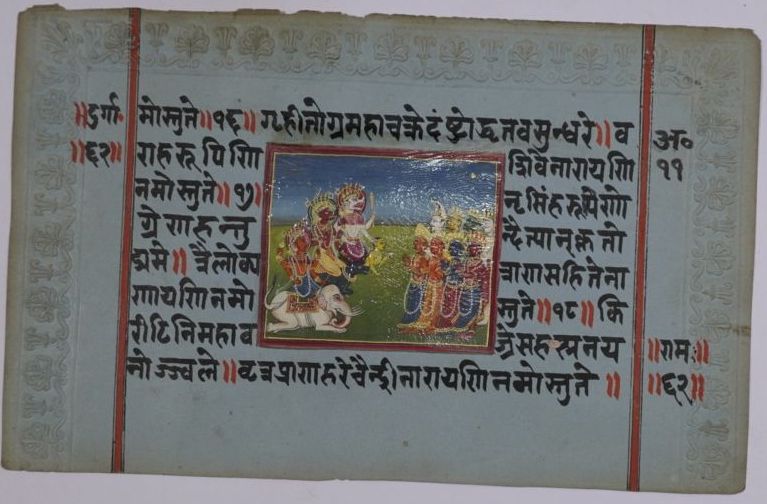 ॥दुर्गा॰
॥६२॥
मोस्तुते॥१६॥ गृहीतोग्रमहाचक्रेदंष्ट्रोद्धृतवसुन्धरे॥व
राहरूपिणि शिवेनारायणि
नमोस्तुते॥१७॥ नृसिंहरूपेणो
ग्रेणहन्तु न्दैत्यान्कृतो
द्यमे॥त्रैलोक्य त्राणसहितेना
रायणिनमो स्तुते॥१८॥कि
रीटिनिमहाव ज्रेसहस्रनय
नोज्ज्वले॥वृत्रप्राणहरेचैन्द्रीनारायणिनमोस्तुते॥
अ॰
११
॥रामः॥
॥६२॥